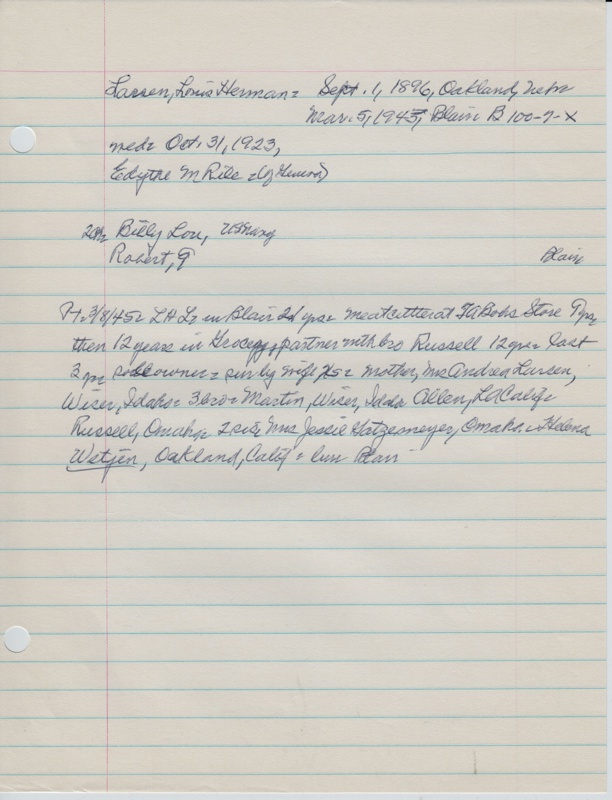 Larsen, Louis Herman = Sept. 1, 1896, Oakland, Nebr
Mar. 5, 1945, Blair B 100-7-X
med= Oct. 31, 1923,
Edythe M
Billy Lou, US Navy
Robert, 9 Blair
3/8/45= in Blair 21 yrs= meatcutter at Store 9 yrs
then 12 years in Grocery, partner with bro Russell 12 yrs= last
2 yrs sole owner = surv by wife = mother, Mrs Andrea Larsen,
Wiser, Idaho= 3 bro= Martin, Wiser, Ida= Allen, LA Calif=
Russell, Omaha= 2 sis, Mrs Jessie Katzenmeyer, Omaha = Helena
Wetjen, Oakland, Calif = bur Blair